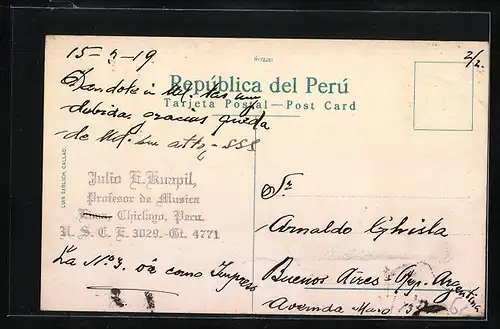 15-3-19
2/2.
R-72261
República del Perú
Tarjeta Postal—Post Card
Dandote á Ud. las
debidas gracias queda
de Ud. su atto, SSS
LUIS SABLICH, CALLAO.
Julio E. Knapil,
Profesor de Musica
Lima, Chiclayo, Peru
U. S. C. E. 3029.-Gt. 4771
La Nº 3. va como Impreso
Sr
Arnaldo Ghisla
Buenos Aires Rep. Argentina
Avenida Mayo